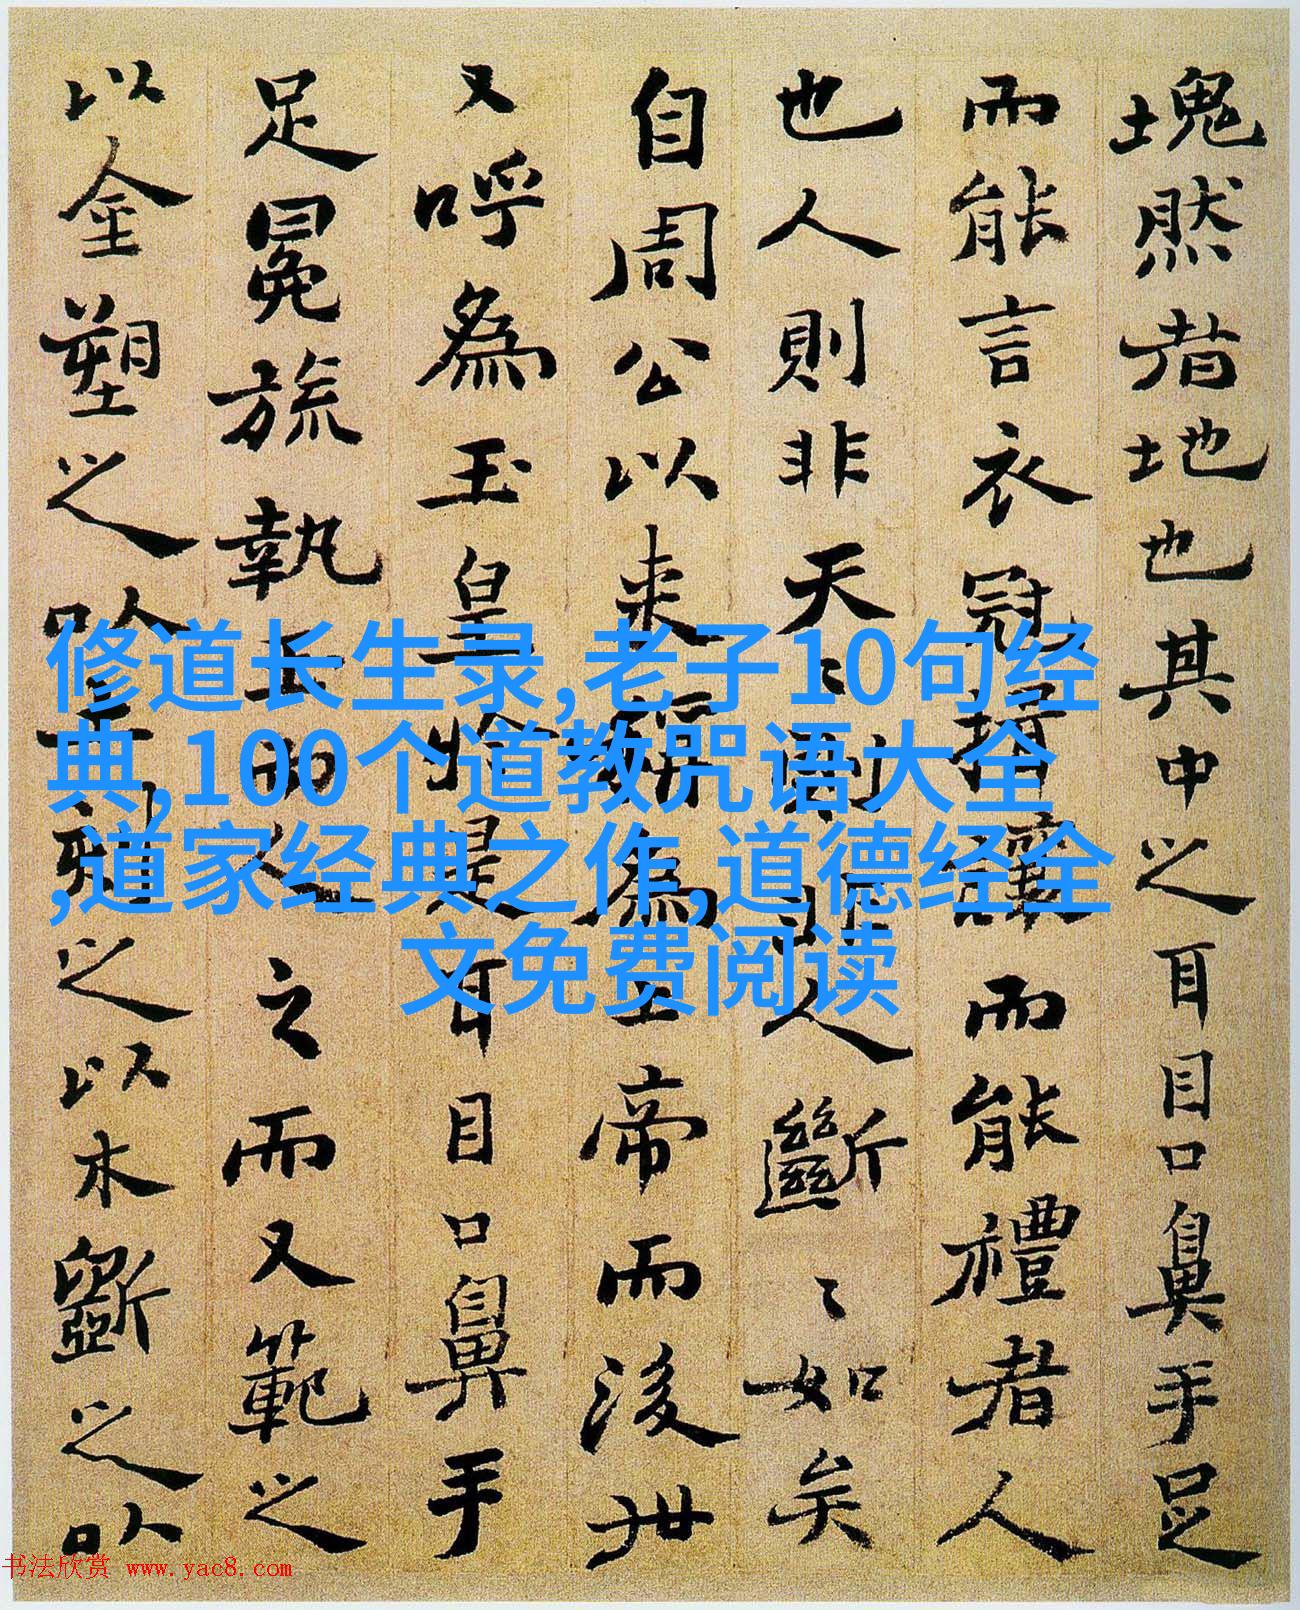 塊然者地也其中之耳目口鼻手足
而能言衣冠揖讓而能禮者人
也人則非天〻則非人斷〻如矣
自周公以來稱為上帝而後世
又呼為玉皇於是耳目口鼻手
足冕旒執玉而人之而又範之
以金塑之以土刻之以木斲之以
修道长生录,老子10句经
典,100个道教咒语大全
,道家经典之作,道德经全
文免费阅读
书法欣赏 www.yac8.com